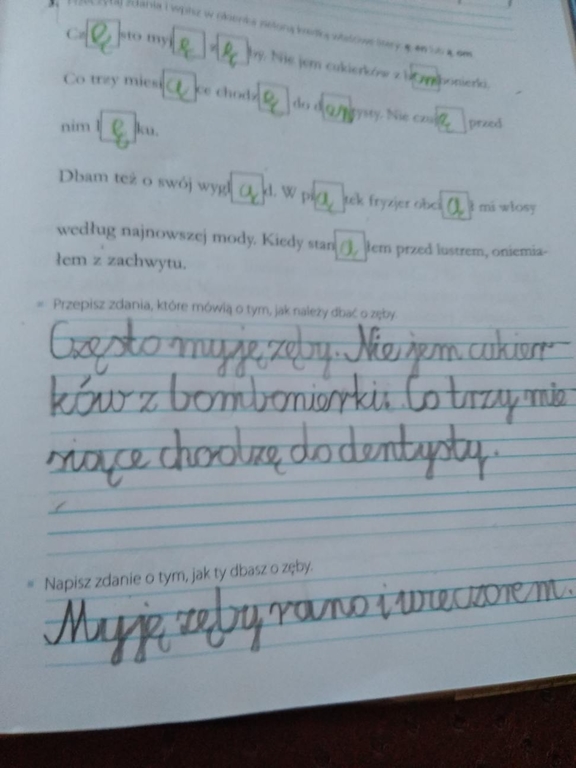 3. Przeczytaj zdania i wpisz w okienka zieloną kredką właściwe litery: ę, en lub ą, om.
Często myję zęby. Nie jem cukierków z bombonierki.
Co trzy miesiące chodzę do dentysty. Nie czuję przed
nim lęku.
Dbam też o swój wygląd. W piątek fryzjer obciął mi włosy
według najnowszej mody. Kiedy stanąłem przed lustrem, oniemia-
łem z zachwytu.
Przepisz zdania, które mówią o tym, jak należy dbać o zęby.
Często myję zęby. Nie jem cukier-
ków z bombonierki. Co trzy mie
siące chodzę do dentysty.
Napisz zdanie o tym, jak ty dbasz o zęby.
Myję zęby rano i wieczorem.